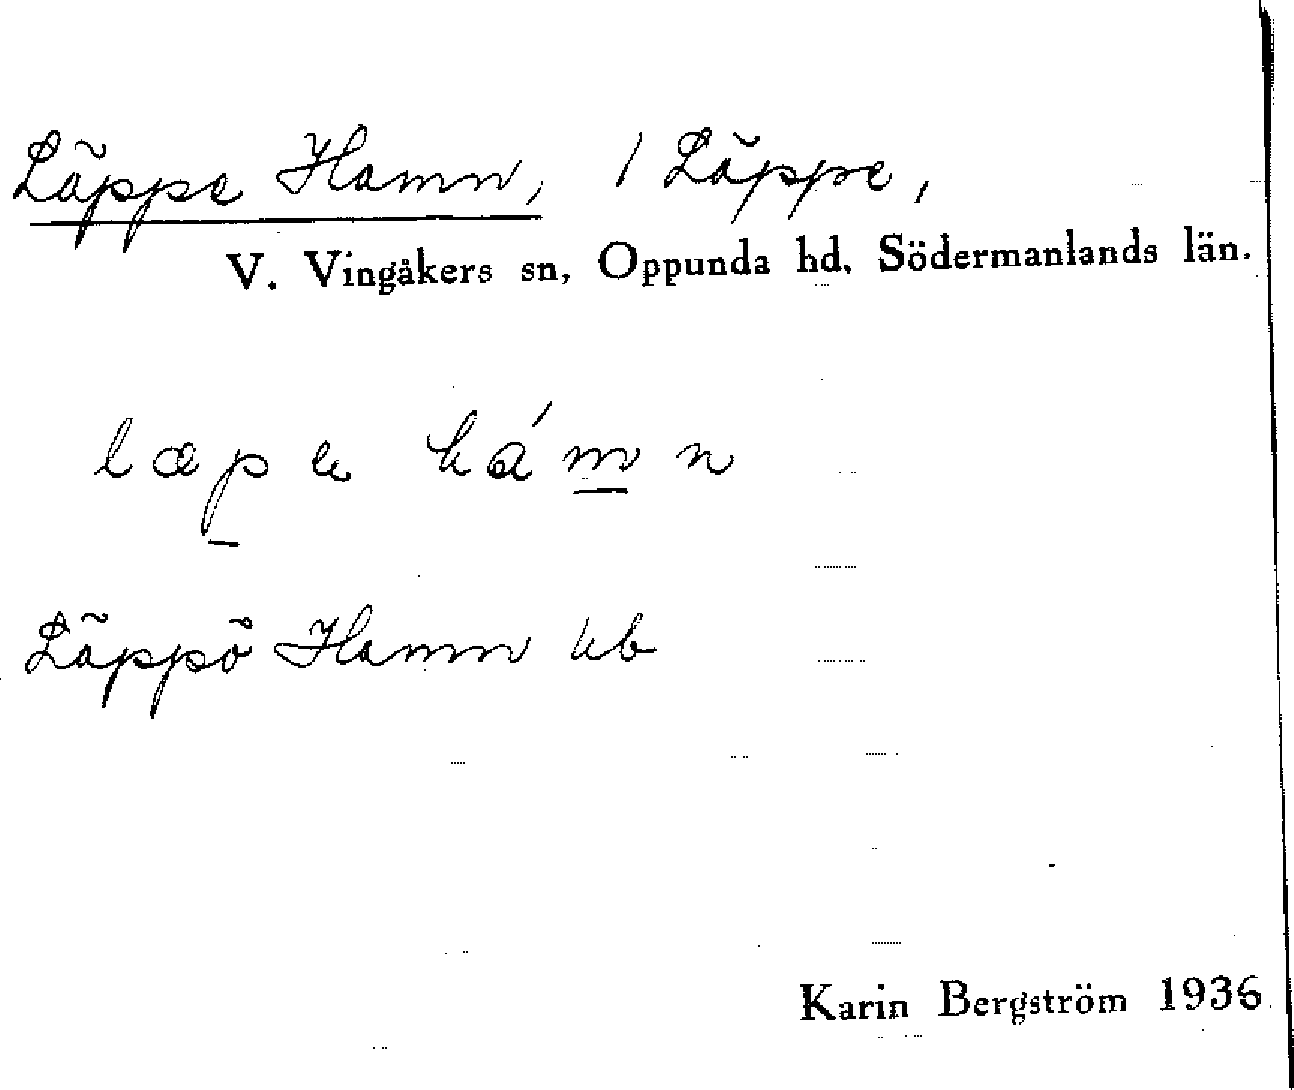 Läppe Hamn, / Läppe,
V. Vingåkers sn, Oppunda hd, Södermanlands län.
læpe hám̲n
Läppö Hamn kb
Karin Bergström 1936